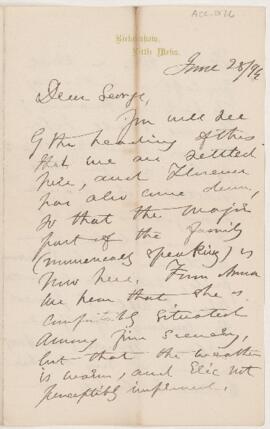 Dear George,
You will see
by the heading of this
that we are settled
here, and Florence
has also come down,
so that the major
part of the family
(numerically speaking) is
now here. From Anna
we hear that she is
comfortably situated
among fine scenery,
but that the weather
is warm, and Elsie not
perceptibly improved.